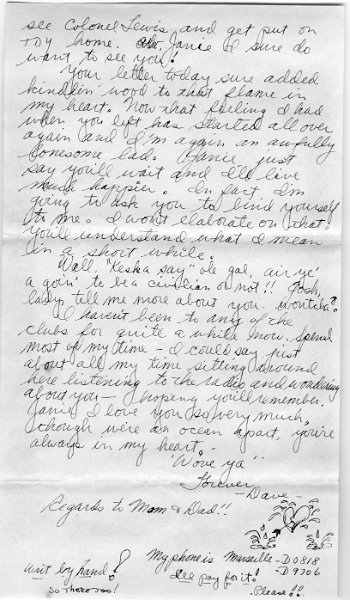 see Colonel Lewis and get put on
TDY home. Aw. Janie I sure do
want to see you!
Your letter today sure added
kindlin' wood to that flame in
my heart. Now that feeling I had
when you left has started all over
again and I'm again an awfully
lonesome lad. Janie just
say you'll wait and I'll live
much happier. In fact I'm
going to ask you to bind yourself
to me. I won't elaborate on that
you'll understand what I mean
in a short while.
Well, "Keska say" ole gal, air ye'
a goin' to be a civilian or not!! Gosh,
lady, tell me more about you - wontcha?
I haven't been to any of the
clubs for quite a while now. Spend
most of my time - I could say just
about all my time sitting around
here listening to the radio and wondering
about you - hoping you'll remember.
Janie I love you so very much,
though were an ocean apart, you're
always in my heart.
'Wove ya'
Forever
- Dave -
Regards to Mom & Dad!!
My phone is Marseille - D0818
- D9706
writ by hand!
I'll pay for it!
Please!!
SO THERE TOO!